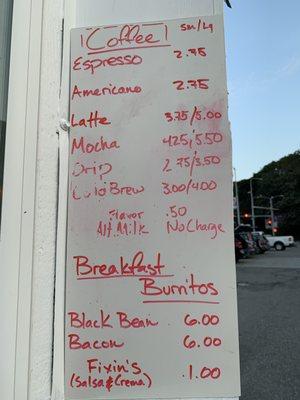 Coffee Sm/Lg
Espresso 2.75
Americano 2.75
Latte 3.75/5.00
Mocha 4.25/5.50
Drip 2.75/3.50
Cold Brew 3.00/4.00
Flavor .50
Alt. Milk No Charge
Breakfast
Burritos
Black Bean 6.00
Bacon 6.00
Fixin's
(Salsa & Crema) 1.00